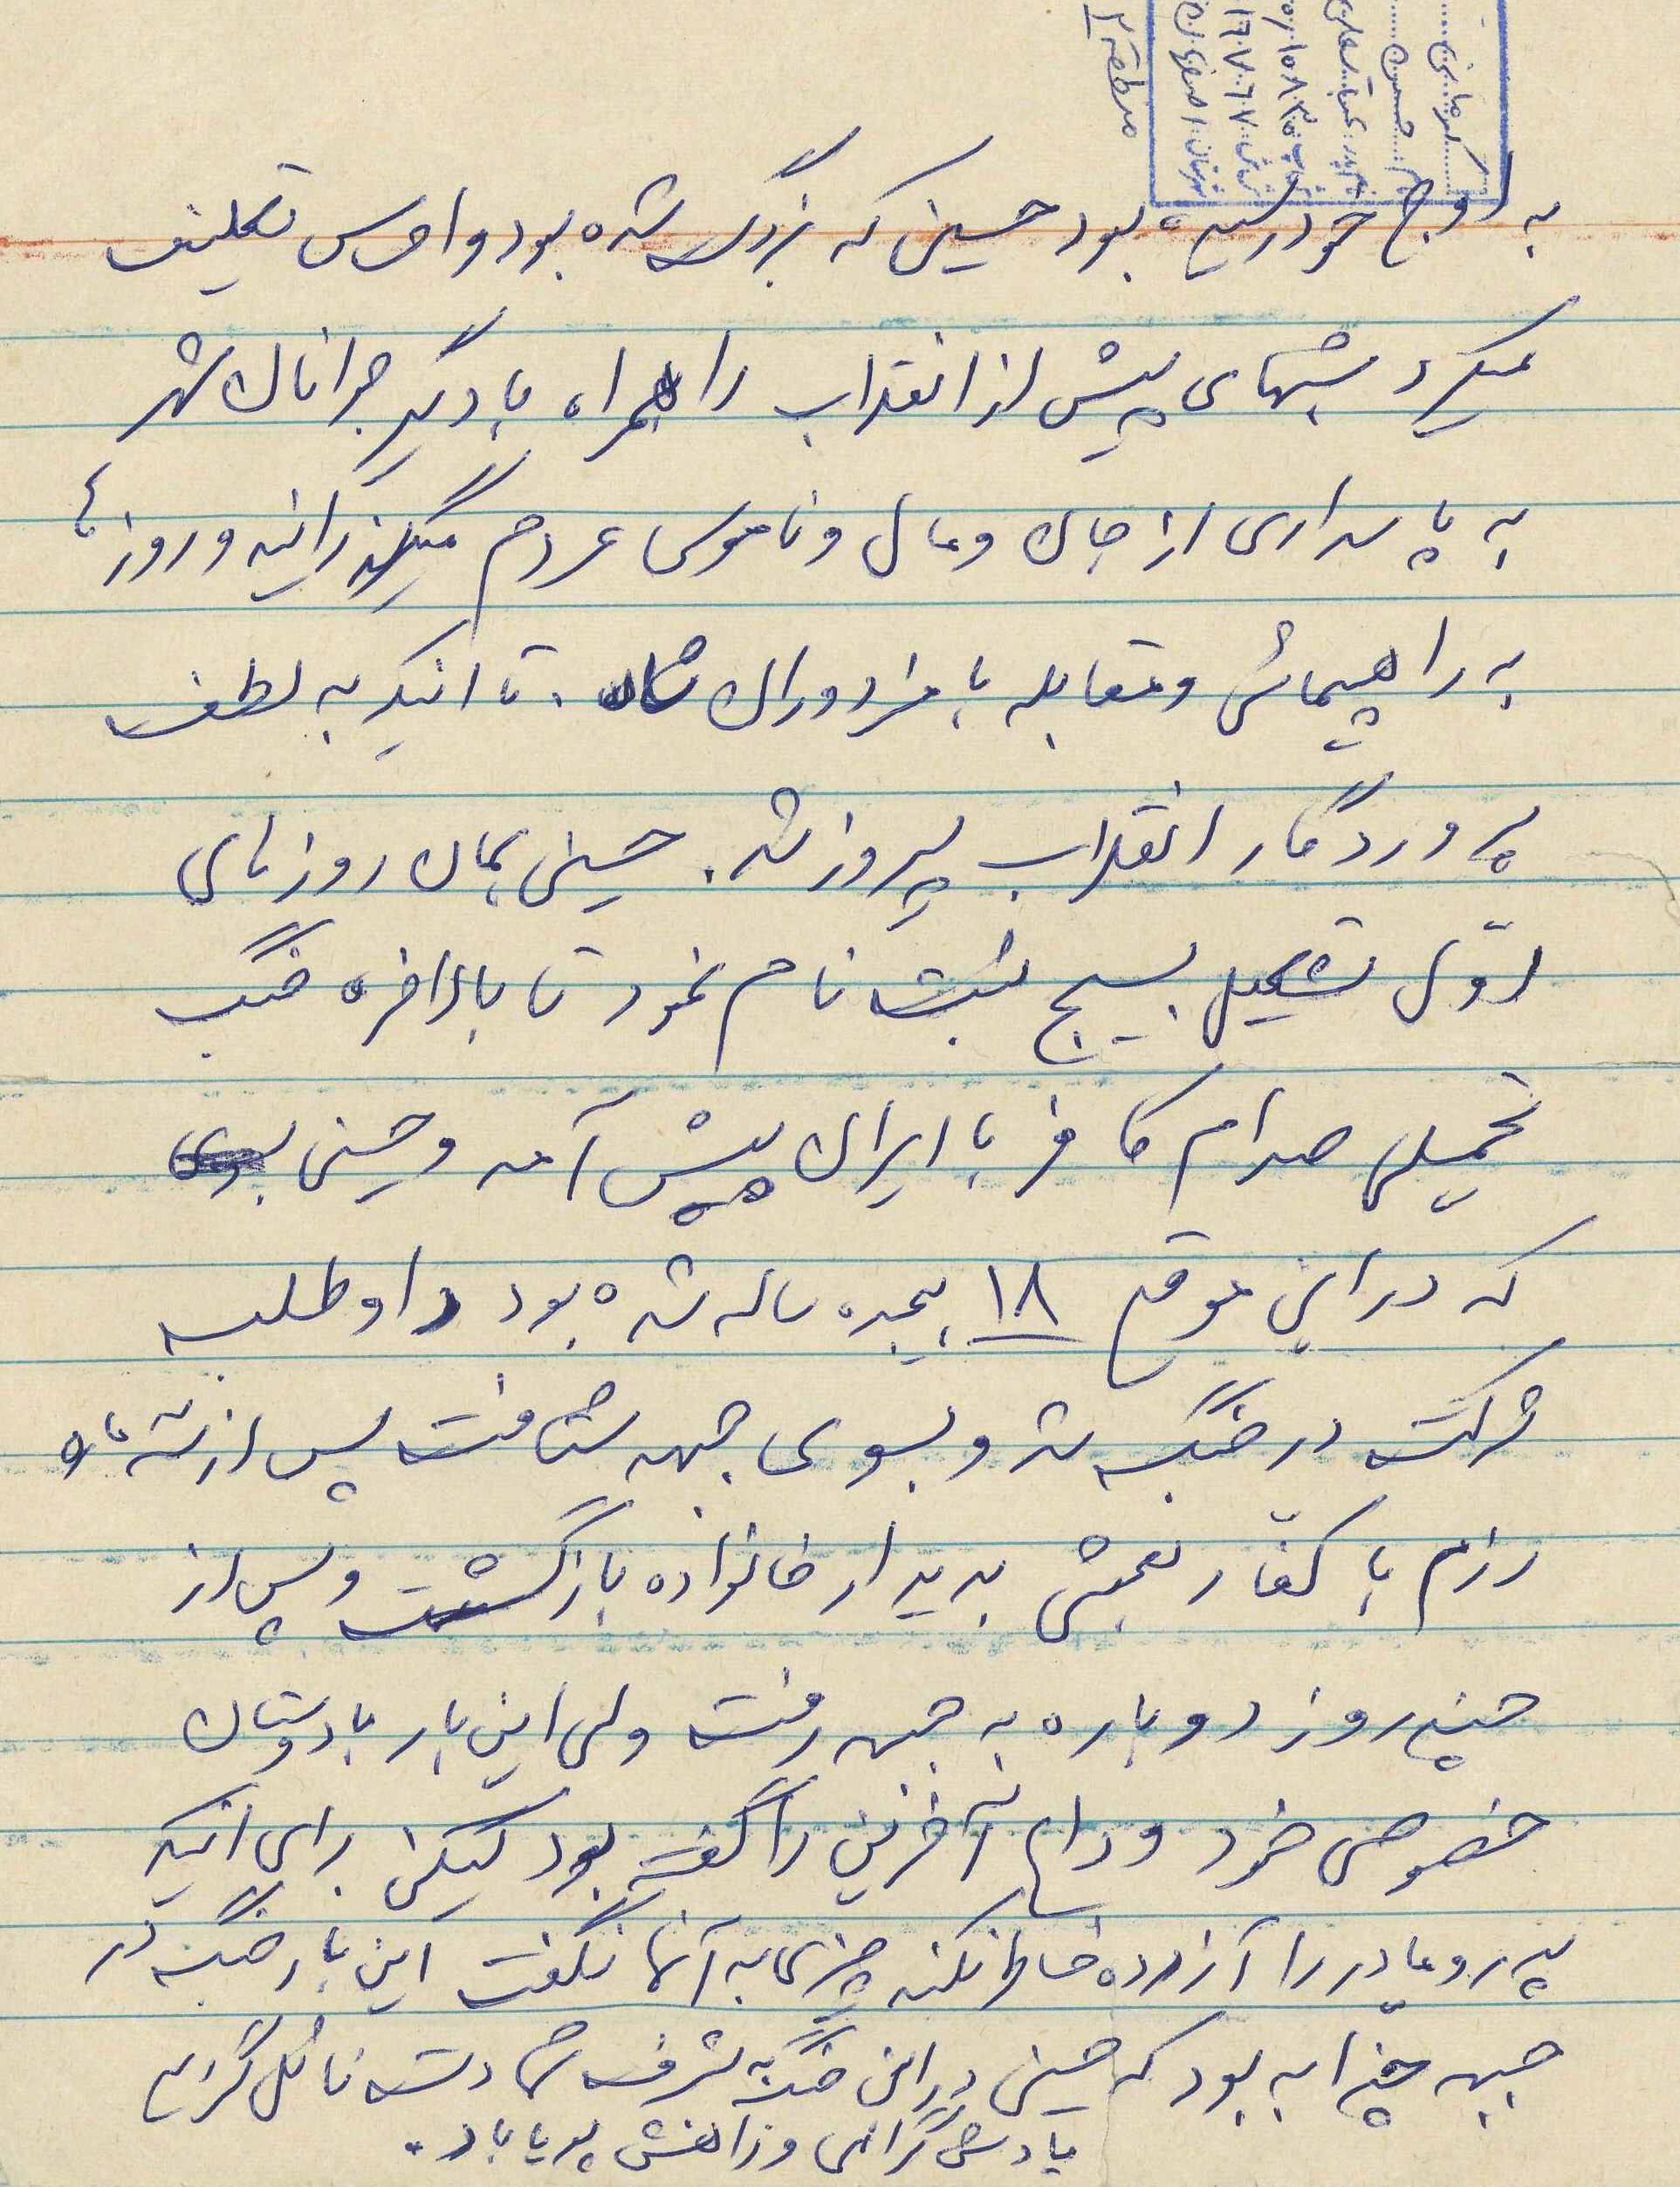 به اوج خود رسیده بود حسین که بزرگ شده بود و احساس تکلیف
میکرد شبهای پیش از انقلاب را همراه با دیگر جوانان شهر
به پاسداری از جان و مال و ناموس مردم میگذراند و روزها
به راهپیمائی و مقابله با مزدوران شاه . تا اینکه به لطف
پروردگار انقلاب پیروز شد . حسین همان روزهای
اوّل تشکیل بسیج ثبت نام نمود تا بالاخره جنگ
تحمیلی صدام کافر با ایران پیش آمد و حسین
که در این موقع ۱۸ هیجده ساله شده بود داوطلب
شرکت در جنگ شد و بسوی جبهه شتافت پس از سه ماه
رزم با کفّار بعثی بدیدار خانواده بازگشت و پس از
چند روز دوباره به جبهه رفت ولی این بار با دوستان
خصوصی خود وداع آخرین را گفته بود لیکن برای اینکه
پدر و مادر را آزرده خاطر نکند چیزی به آنها نگفت این بار جنگ در
جبهه چزابه بود که حسین در این جنگ به شرف شهادت نائل گردید
یادش گرامی و راهش پویا باد .
منطقه ۲
نام پدر